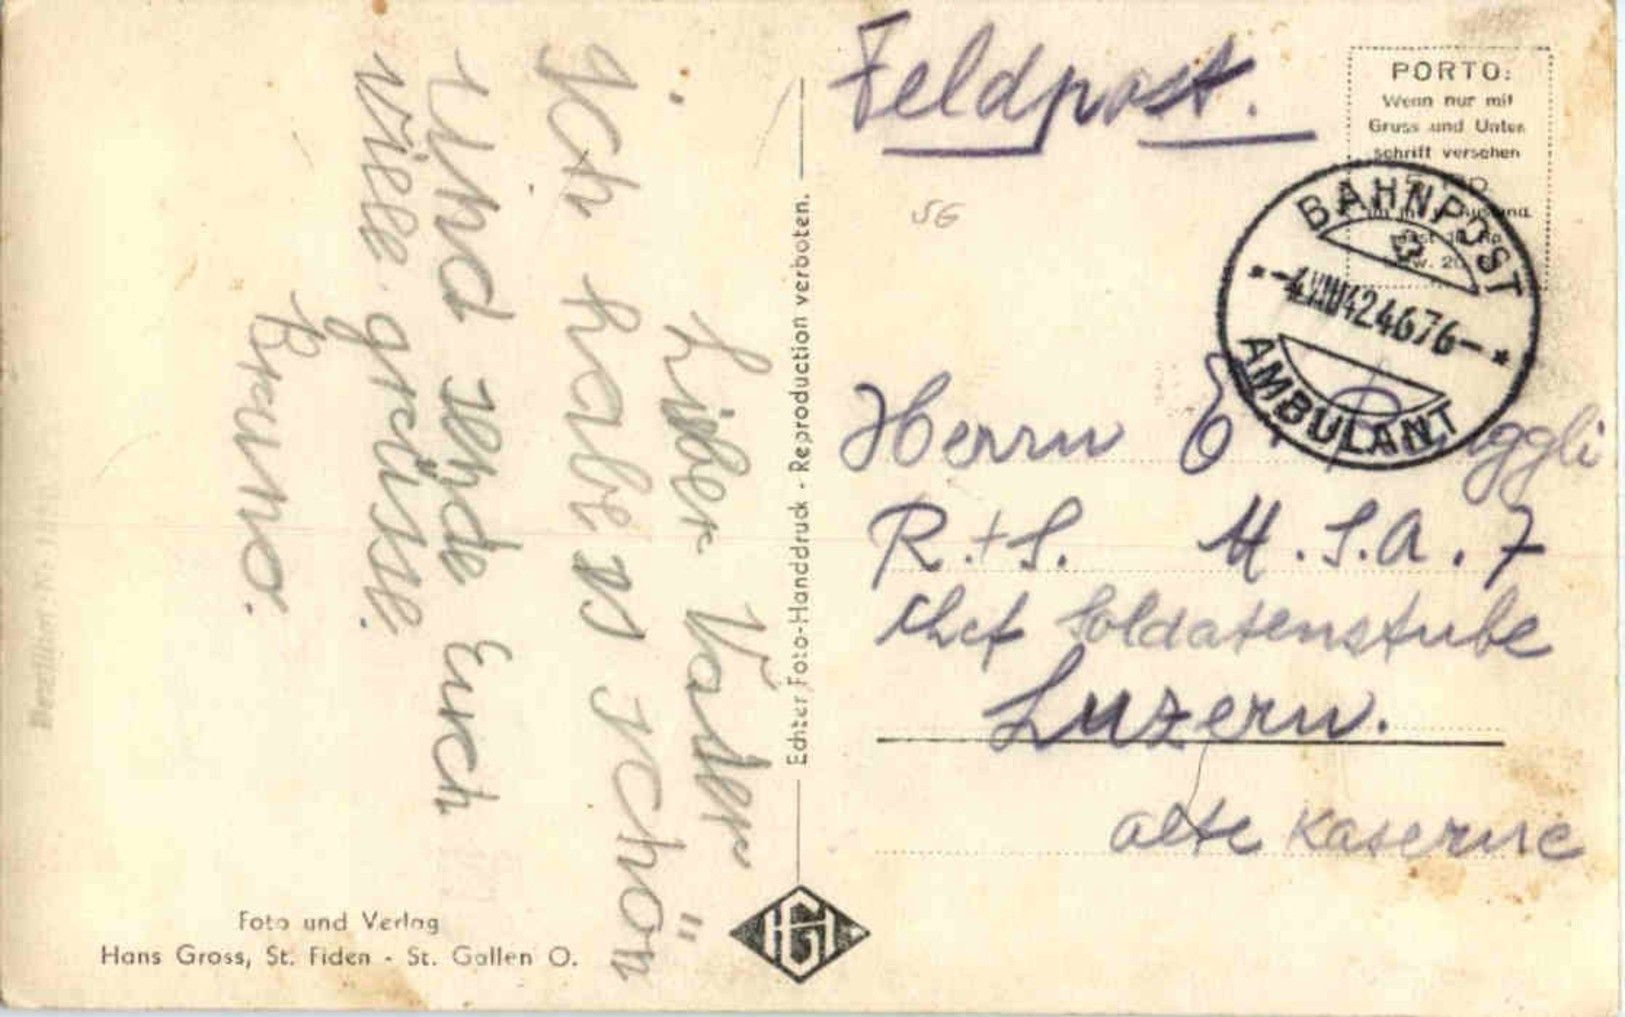 Feldpost.
PORTO:
Wenn nur mit
Gruss und Unter
schrift versehen
BAHNPOST
-4.VIII42 4676-
AMBULANT
SG
Herrn E. Rüggli
R.+S. M.S.A. 7
Chef Soldatenstube
Luzern.
alte Kaserne
Lieber Vatter
Ich habe es schön
und sende Euch
viele grüsse.
Bruno.
Echter Foto-Handdruck - Reproduction verboten.
Foto und Verlag
Hans Gross, St. Fiden - St. Gallen O.
HG